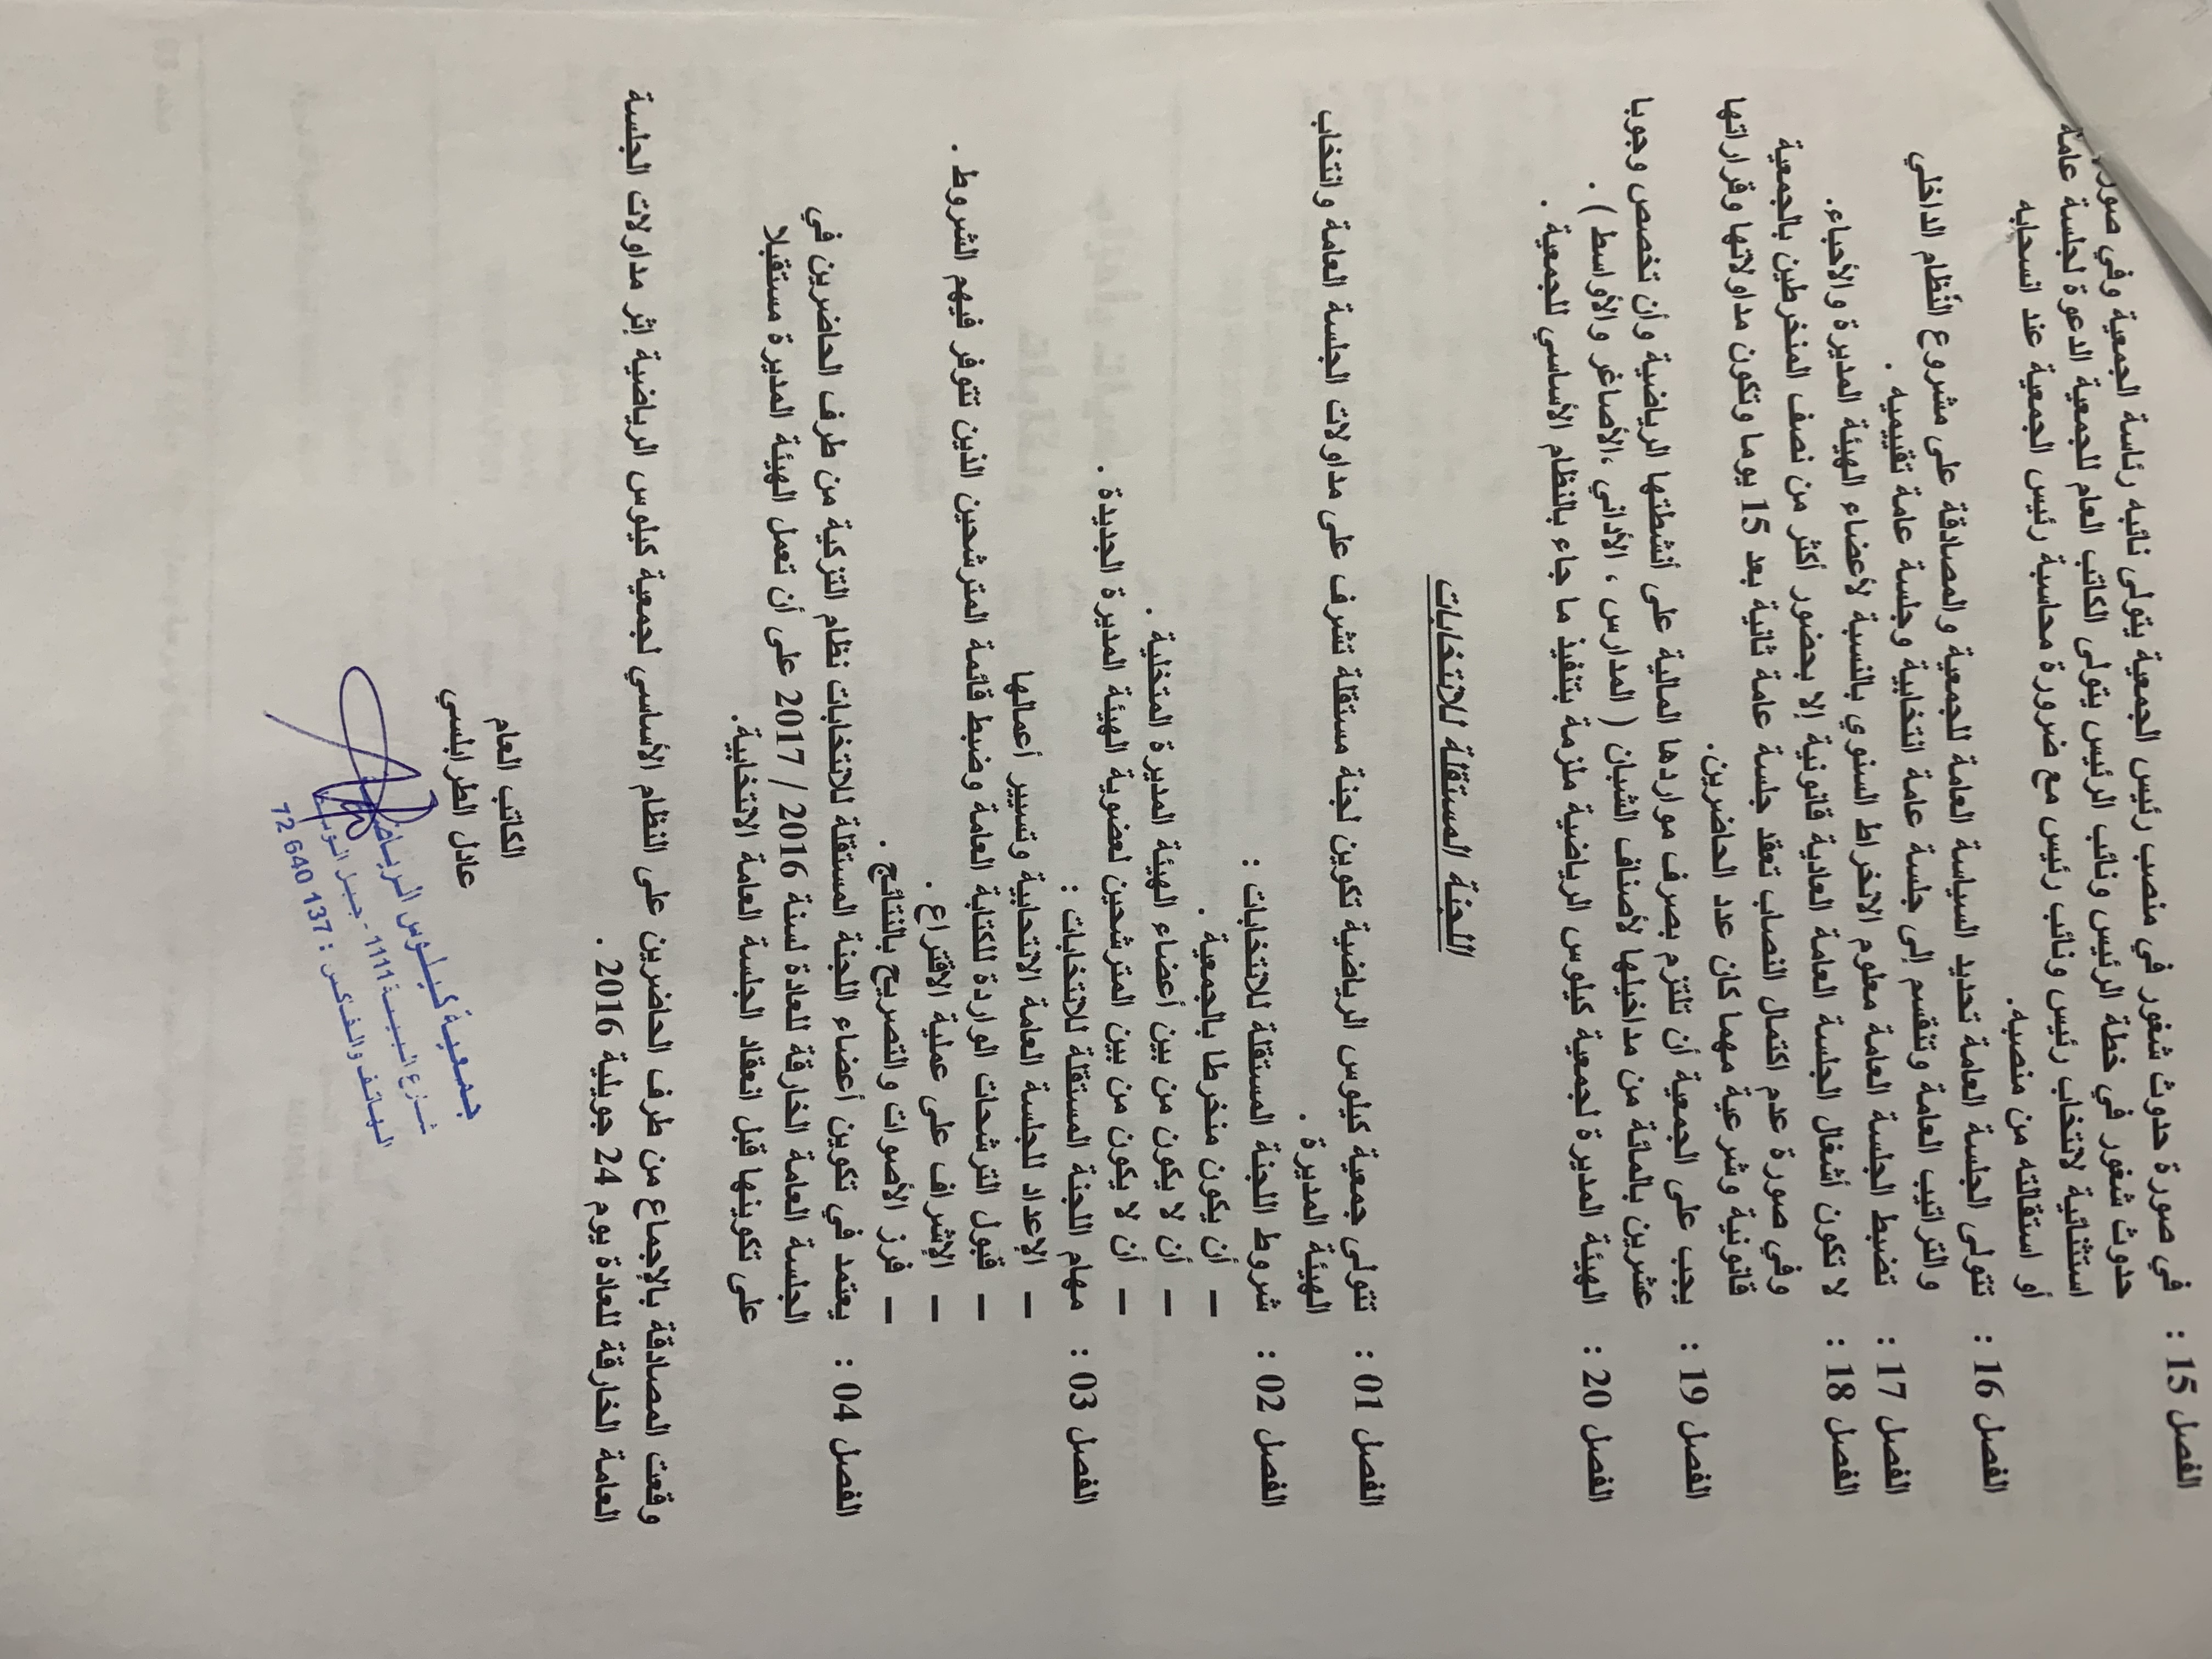 الفصل 15 : في صورة حدوث شغور في منصب رئيس الجمعية يتولى نائبه رئاسة الجمعية وفي
حدوث شغور في خطة الرئيس ونائب الرئيس يتولى الكاتب العام للجمعية الدعوة لجلسة عامة
استثنائية لانتخاب رئيس ونائب رئيس مع ضرورة محاسبة رئيس الجمعية عند انسحابه
أو استقالته من منصبه.
الفصل 16 : تتولى الجلسة العامة تحديد السياسة العامة للجمعية والمصادقة على مشروع النّظام الداخلي
والتراتيب العامة وتنقسم إلى جلسة عامة انتخابية وجلسة عامة تقييمية .
الفصل 17 : تضبط الجلسة العامة معلوم الانخراط السنوي بالنسبة لأعضاء الهيئة المديرة والأحباء.
الفصل 18 : لا تكون أشغال الجلسة العامة العادية قانونية إلا بحضور أكثر من نصف المنخرطين بالجمعية
وفي صورة عدم اكتمال النصاب تعقد جلسة عامة ثانية بعد 15 يوما وتكون مداولاتها وقراراتها
قانونية وشرعية مهما كان عدد الحاضرين.
الفصل 19 : يجب على الجمعية أن تلتزم بصرف مواردها المالية على أنشطتها الرياضية وأن تخصص وجوبا
عشرين بالمائة من مداخيلها لأصناف الشبان ( المدارس ، الأداني ،الأصاغر والأواسط ) .
الفصل 20 : الهيئة المديرة لجمعية كيلوس الرياضية ملزمة بتنفيذ ما جاء بالنظام الأساسي للجمعية .
اللجنة المستقلة للانتخابات
الفصل 01 : تتولى جمعية كيلوس الرياضية تكوين لجنة مستقلة تشرف على مداولات الجلسة العامة وانتخاب
الهيئة المديرة .
الفصل 02 : شروط اللجنة المستقلة للانتخابات :
– أن يكون منخرطا بالجمعية .
– أن لا يكون من بين أعضاء الهيئة المديرة المتخلية .
– أن لا يكون من بين المترشحين لعضوية الهيئة المديرة الجديدة .
الفصل 03 : مهام اللجنة المستقلة للانتخابات :
– الإعداد للجلسة العامة الانتخابية وتسيير أعمالها
– قبول الترشحات الواردة للكتابة العامة وضبط قائمة المترشحين الذين تتوفر فيهم الشروط .
– الإشراف على عملية الاقتراع .
– فرز الأصوات والتصريح بالنتائج .
الفصل 04 : يعتمد في تكوين أعضاء اللجنة المستقلة للانتخابات نظام التزكية من طرف الحاضرين في
الجلسة العامة الخارقة للعادة لسنة 2016 / 2017 على أن تعمل الهيئة المديرة مستقبلا
على تكوينها قبل انعقاد الجلسة العامة الانتخابية.
وقعت المصادقة بالإجماع من طرف الحاضرين على النظام الأساسي لجمعية كيلوس الرياضية إثر مداولات الجلسة
العامة الخارقة للعادة يوم 24 جويلية 2016 .
الكاتب العام
عادل الطرابلسي
جمعية كيلوس
شارع البيئة 1111 - جبل
الهاتف والفاكس : 72 640 137